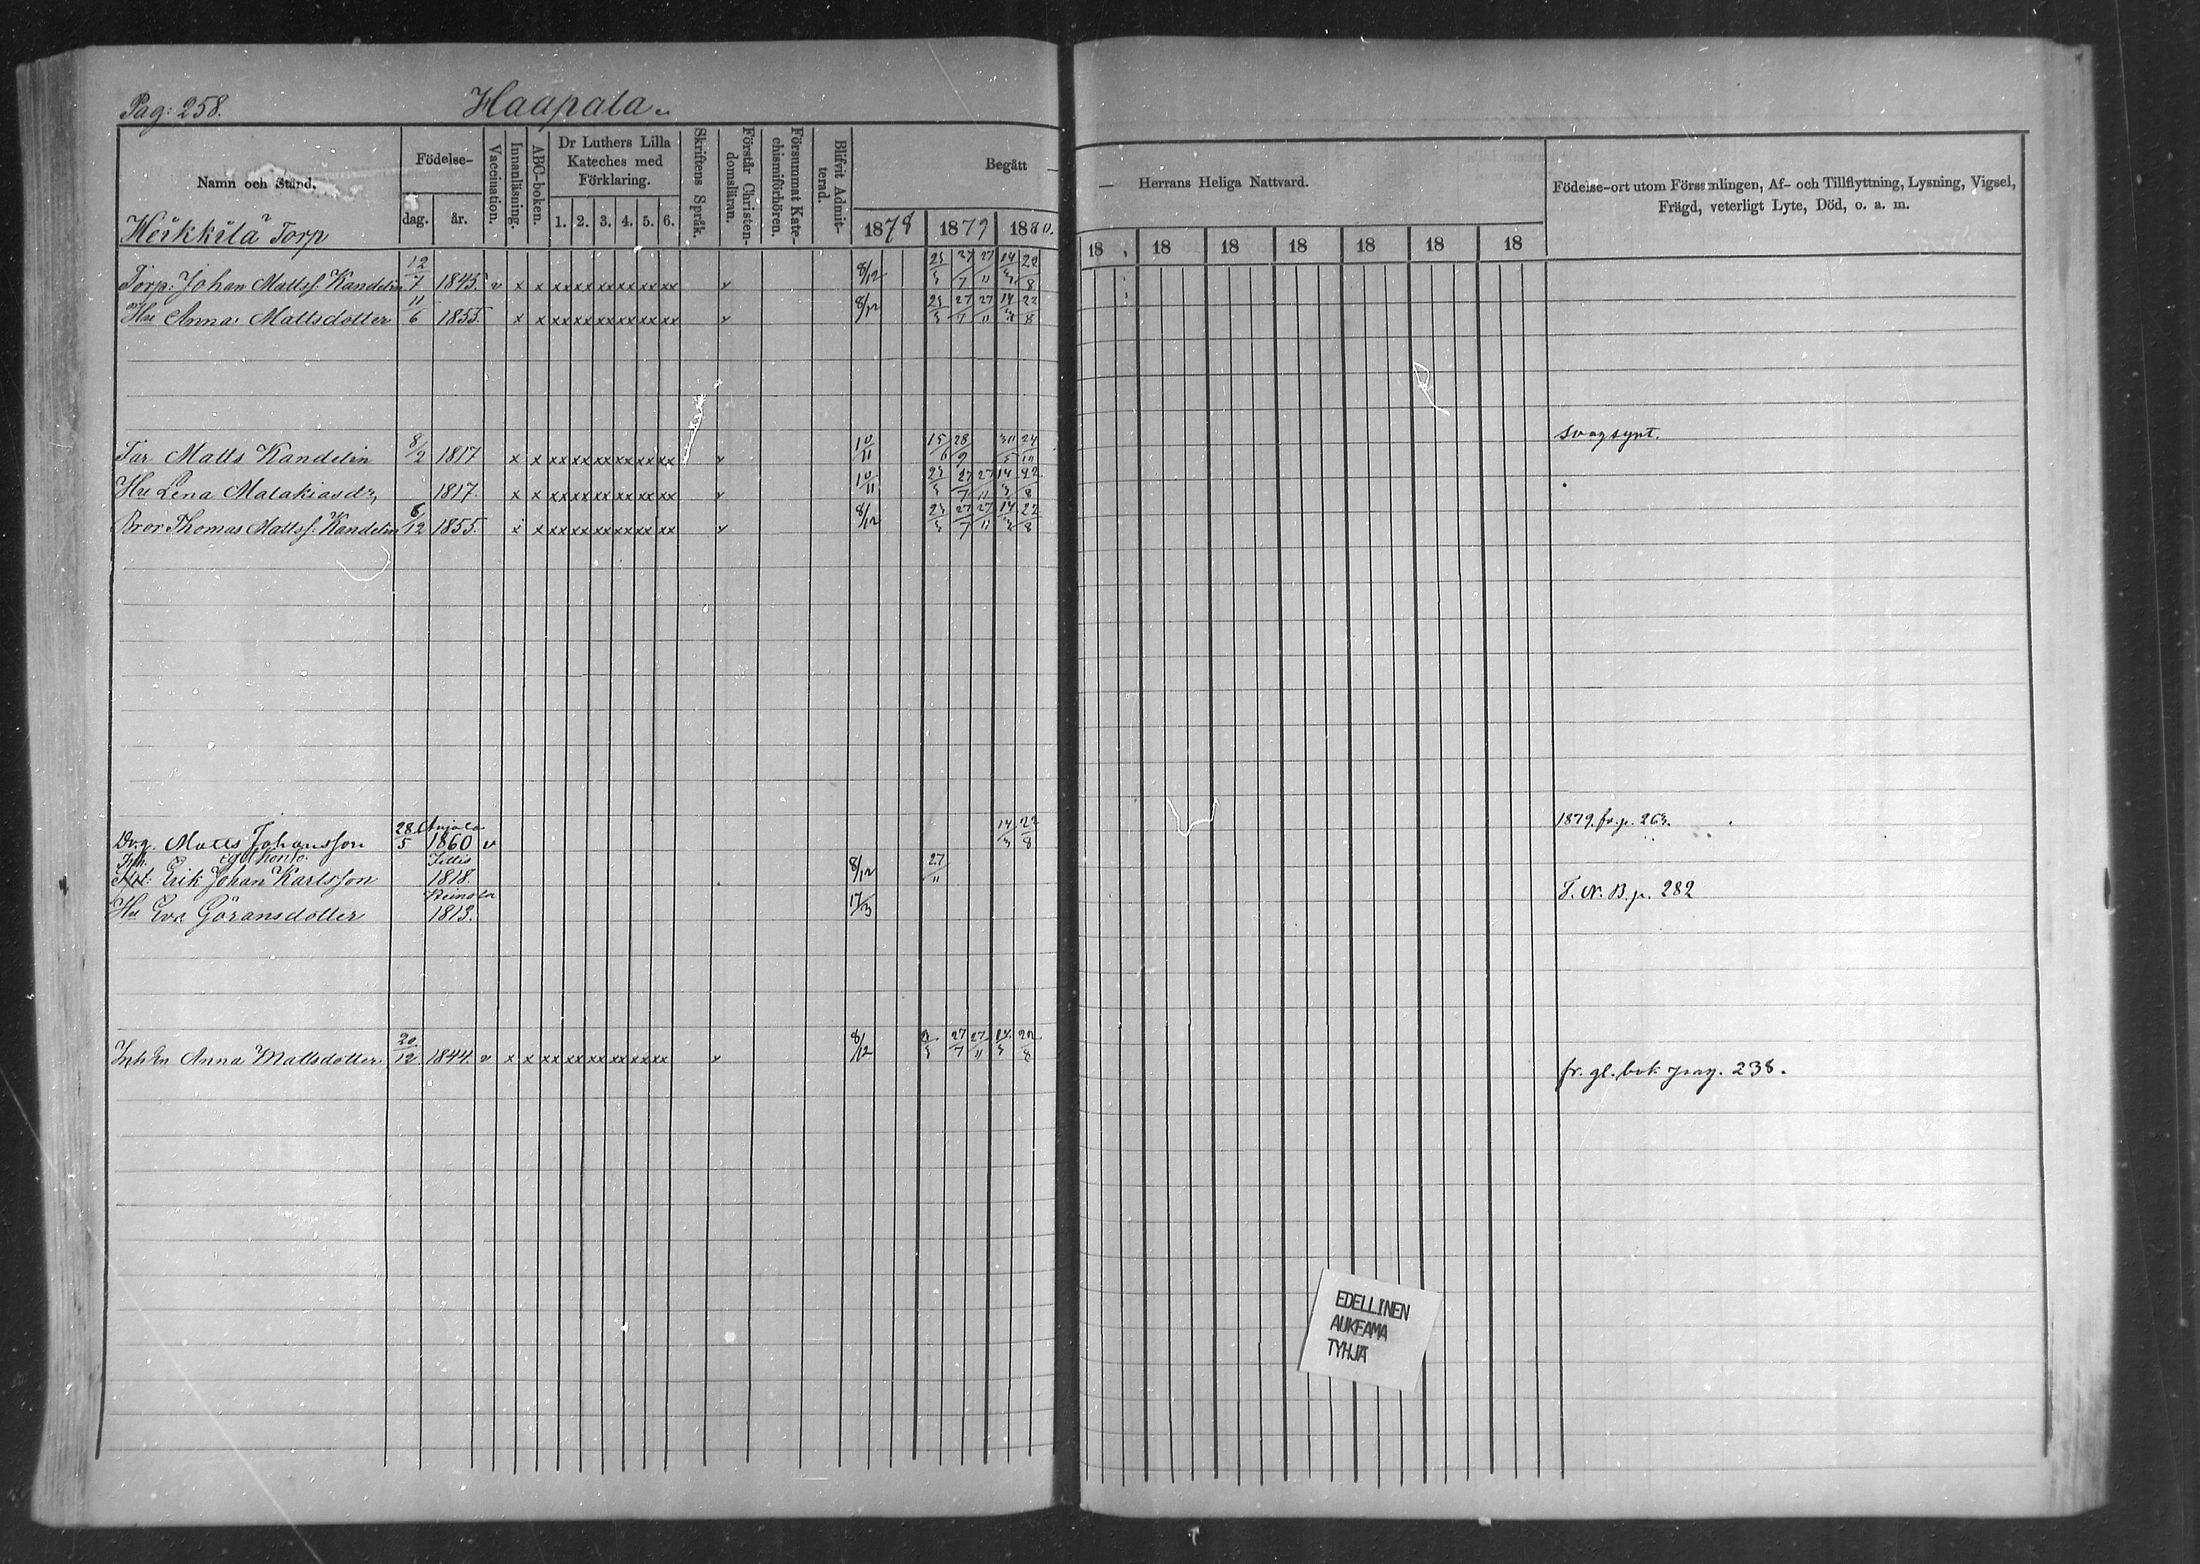 Pag: 258.
Haapala
Namn och Stånd.
Födelse-
dag.
år.
Vaccination.
Innanläsning.
ABC-boken.
Dr Luthers Lilla
Kateches med
Förklaring.
1. 2. 3. 4. 5. 6.
Skriftens Språk.
Förstår Christen-
domsläran.
Försummat Kate-
chismiförhören.
Blifvit Admit-
terad.
Begått —
— Herrans Heliga Nattvard.
1878 1879 1880.
18 18 18 18 18 18 18
Födelse-ort utom Församlingen, Af- och Tillflyttning, Lysning, Vigsel,
Frägd, veterligt Lyte, Död, o. a. m.
Heikkilä Torp
Torp: Johan Mattss: Kandelin 12/7 1845. v x x xx xx xx xx xx xx v 8/12 23/3 27/7 27/11 14/3 22/8
Hu Anna Mattsdotter 11/6 1855. x x xx xx xx xx xx xx v 8/12 23/3 27/7 27/11 14/3 22/8
Far Matts Kandelin 8/2 1817 x x xx xx xx xx xx xx v 10/11 15/6 28/9 24/10 svagsynt.
Hu Lena Malakiasdr, 1817. x x xx xx xx xx xx xx v 10/11 23/3 27/7 27/11 14/3 22/8
Bror Thomas Mattss. Kandelin 6/12 1855. x x xx xx xx xx xx xx v 8/12 23/3 27/7 27/11 14/3 22/8
Drg. Matts Johansson 28/5 Anjala 1860 v 14/3 22/8 1879. fr. p. 263.
Erik Johan Karlsson Jittis 1818. 8/12 27/11
Hu Eva Göransdotter Heinola 1813. 17/3 T. N. B. p. 282
Inh En Anna Mattsdotter 20/12 1844. v x x xx xx xx xx xx xx v 8/12 27/7 27/11 14/3 22/8
fr. gl. bok pag. 238.
EDELLINEN
AUKEAMA
TYHJÄ